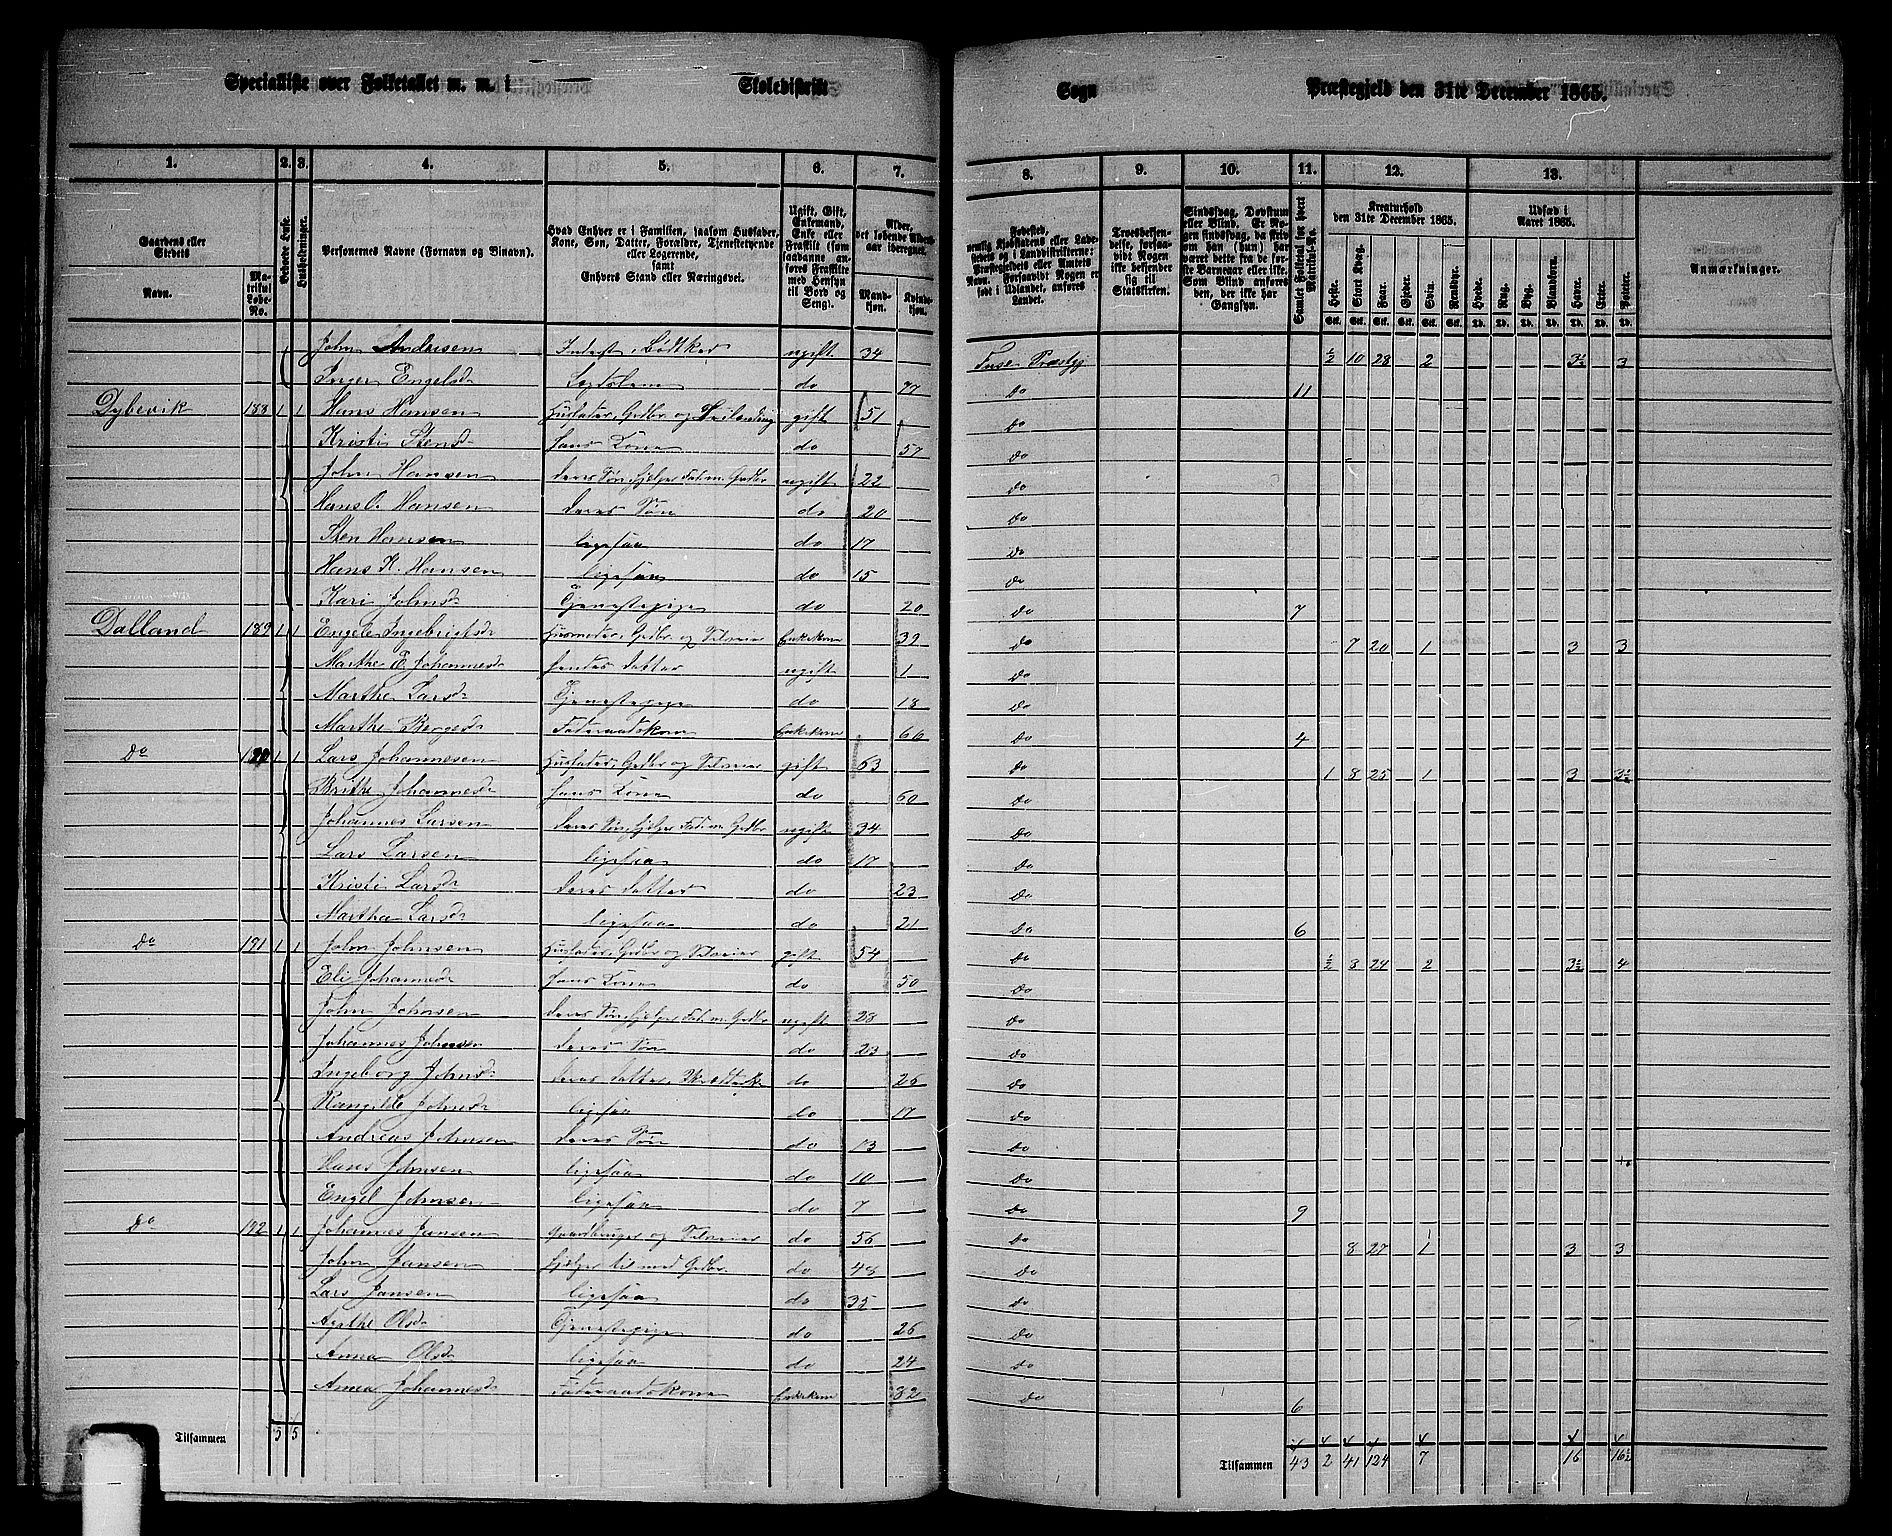 Specialliste over Folketallet m. m. i Skoledistrikt Sogn Præstegjeld den 31te December 1865.
1. 2. 3. 4. 5. 6. 7. 8. 9. 10. 11. 12. 13.
Gaardens eller Stedets
Navn. Matrikul Løbe-No.
Beboede Huse.
Husholdninger.
Personernes Navne (Fornavn og Binavn).
Hvad Enhver er i Familien, saasom Husfader, Kone, Søn, Datter, Forældre, Tjenestetyende eller Logerende, samt Enhvers Stand eller Næringsvei.
Ugift, Gift, Enkemand, Enke eller Fraskilt (som saadanne anføres Fraskilte med Hensyn til Bord og Seng).
Alder, det løbende Alders-aar iberegnet.
Mandkjøn. Kvindekjøn.
Fødested, nemlig Kjøbstadens eller Ladestedets eller i Landdistrikterne: Præstegjeldets eller Amtets Navn. Forsaavidt Nogen er født i Udlandet, anføres Landet.
Troesbekjendelse, forsaavidt Nogen ikke bekjender sig til Statskirken.
Sindssvag, Døvstum eller Blind. Er Nogen sindssvag, da skriv om han (hun) har været dette fra de første Barneaar eller ikke. Som Blind anføres den, der ikke har Gangsyn.
Samlet Folketal for hvert Matrikul-No.
Kreaturhold den 31te December 1865.
Heste. Stort Kvæg. Faar. Gjeder. Svin. Rensdyr.
Udsæd i Aaret 1865.
Hvede. Rug. Byg. Blandkorn. Havre. Erter. Poteter.
Anmærkninger.
John Andersen Inderst, Bødtker ugift 34 Fuse Præstgj ½ 10 28 2 3½ 3
Inger Engelsdr Legdslem do 77 Do 11
Dybevik 188 1 1 Hans Hansen Husfader, Gdbr og gift 51 Do
Kristi Stensdr Hans Kone do 57 Do
John Hansen deres Søn hjelper Fad. m. Gdbr ugift 22 Do
Hans O. Hansen deres Søn do 20 Do
Sten Hansen ligesaa do 17 Do
Hans K. Hansen ligesaa do 15 Do
Kari Johnsdr Tjenestepige do 20 Do 7
Dalland 189 1 1 Engele Ingebrigtsdr Husmoder, Gdbr og Selveier Enkekone 39 Do 7 20 1 3 3
Marthe E Johannesdr hendes datter ugift 1 Do
Marthe Larsdr Tjenestepige do 18 Do
Marthe Bergesdr Føderaadskone Enkekone 66 Do 4
Do 190 1 1 Lars Johannesen Husfader, Gdbr og Selveier gift 63 Do 1 8 25 1 3 3½
Brithe Johannesdr Hans Kone do 60 Do
Johannes Larsen deres Søn hjelper Fad. m. Gdbr ugift 34 Do
Lars Larsen ligesaa do 17 Do
Kristi Larsdr deres datter do 23 Do
Martha Larsdr ligesaa do 21 Do 6
Do 191 1 1 John Johnsen Husfader, Gdbr og Selveier gift 54 Do ½ 8 24 2 3½ 4
Eli Johannesdr Hans Kone do 50 Do
John Johnsen deres Søn hjelper Fad. m. Gdbr ugift 28 Do
Johannes Johnsen deres Søn do 23 Do
Ingeborg Johnsdr deres datter do 26 Do
Rangilde Johnsdr ligesaa do 17 Do
Andreas Johnsen deres Søn do 13 Do
Hans Johnsen ligesaa do 10 Do
Engel Johnsen ligesaa do 7 Do 9
Do 192 1 1 Johannes Jansen Gaardbruger og Selveier do 56 Do 8 27 1 3 3
John Jansen hjelper til med Gdbr. do 48 Do
Lars Jansen ligesaa do 35 Do
Agithe Olsdr Tjenestepige do 26 Do
Anna Olsdr ligesaa do 24 Do
Anna Johannesdr Føderaadskone Enkekone 82 Do 6
Tilsammen 5 5 Tilsammen 43 2 41 124 7 16 16½